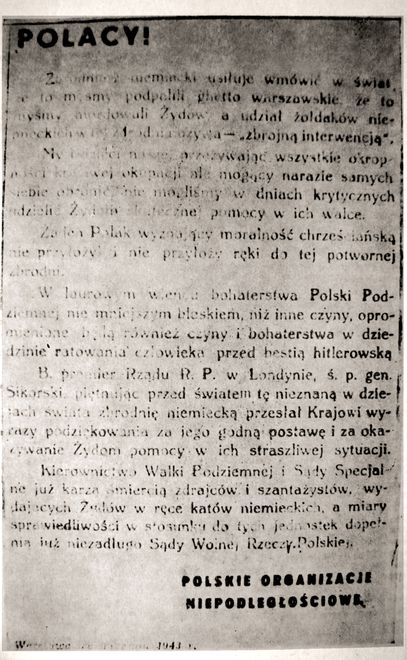 POLACY!
niemiecki usiłuje wmówić w świat
że to myśmy podpalili ghetto warszawskie, że to
myśmy mordowali Żydów, a udział żołdaków nie-
„zbrojną interwencją”.
My przeżywając wszystkie okrop-
ności okupacji nie mogący narazie samych
siebie obronić, nie mogliśmy w dniach krytycznych
udzielić Żydom skutecznej pomocy w ich walce.
Żaden Polak wyznający moralność chrześcijańską
nie przyłożył i nie przyłoży ręki do tej potwornej
zbrodni.
W laurowym wieńcu bohaterstwa Polski Pod-
ziemnej nie mniejszym blaskiem, niż inne czyny, opro-
mienione będą również czyny i bohaterstwa w dzie-
dzinie ratowania człowieka przed bestią hitlerowską
B. premier Rządu R. P. w Londynie, ś. p. gen.
Sikorski, piętnując przed światem tę nieznaną w dzie-
jach świata zbrodnię niemiecką przesłał Krajowi wy-
razy podziękowania za jego godną postawę i za oka-
zywanie Żydom pomocy w ich straszliwej sytuacji.
Kierownictwo Walki Podziemnej i Sądy Specjal-
ne już karzą śmiercią zdrajców i szantażystów, wy-
dających Żydów w ręce katów niemieckich, a miary
sprawiedliwości w stosunku do tych jednostek dopeł-
nią już niezadługo Sądy Wolnej Rzeczy.Polskiej.
POLSKIE ORGANIZACJE
NIEPODLEGŁOŚCIOWE
1943 r.